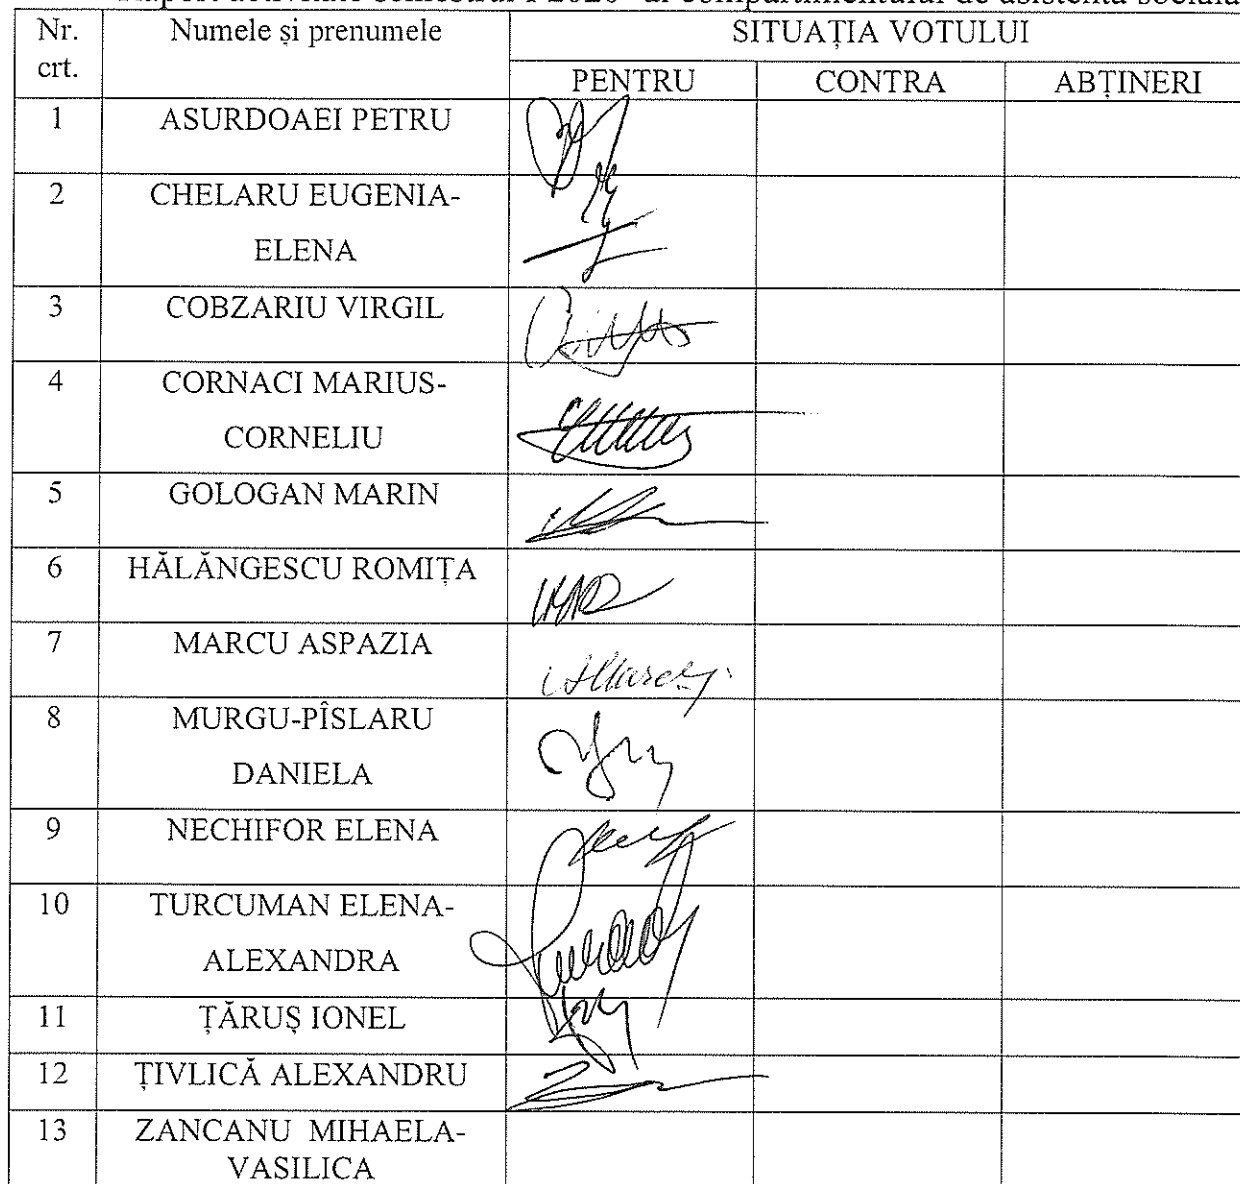 Raport activitate semestrul I 2020- al compartimentului de asistenta sociala
Nr. crt. Numele și prenumele SITUAȚIA VOTULUI
PENTRU CONTRA ABȚINERI
1 ASURDOAEI PETRU
2 CHELARU EUGENIA-
ELENA
3 COBZARIU VIRGIL
4 CORNACI MARIUS-
CORNELIU
5 GOLOGAN MARIN
6 HĂLĂNGESCU ROMIȚA
7 MARCU ASPAZIA
8 MURGU-PÎSLARU
DANIELA
9 NECHIFOR ELENA
10 TURCUMAN ELENA-
ALEXANDRA
11 ȚĂRUȘ IONEL
12 ȚIVLICĂ ALEXANDRU
13 ZANCANU MIHAELA-
VASILICA